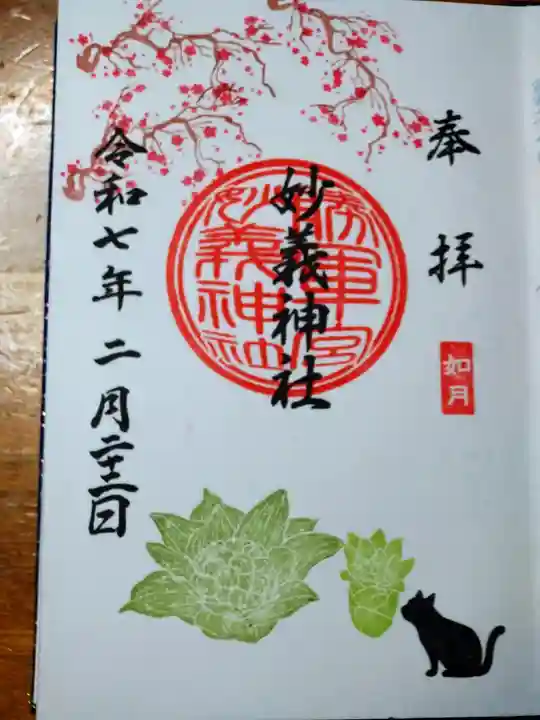 奉拝
如月
妙義神社
妙義神社
令和七年二月二十三日